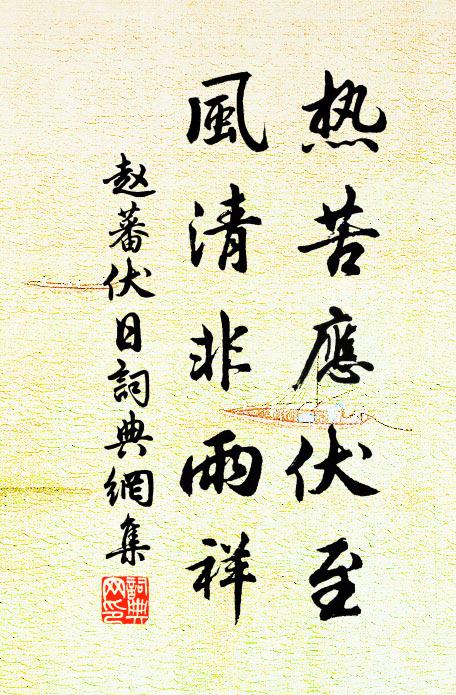 热苦應伏至
風清非雨祥
赵蕃伏日詞典網集
詞典
网印